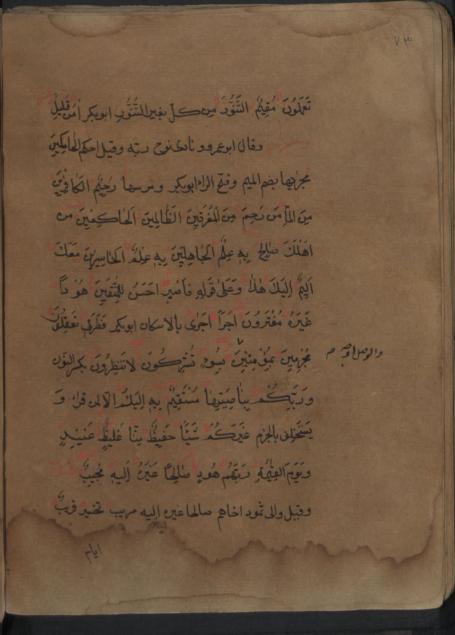 تعلمون مقيم التنور من كل بغير التنور ابوبكر امن قليل
وقال ابوعمرو نوح ربه وقيل احكم الحاكمين
مجريها بضم الميم وفتح الراء ابوبكر ومرسها رحيم الكافرين
من الماء من رحم من المغرقين الظالمين الحاكمين من
اهلك صالح به علم الجاهلين به علم الخاسرين معك
اليم اليك هذا وعلى قوله فاصبر احسن للمتقين هودا
غيره مفترون اجرا اجرى بالاسكان ابوبكر فطرنى تعقلون
مجرمين بمؤمنين بسوء تشركون لا تنظرون
وربكم بناصيتها مستقيم به اليكم
يستخلف بالجزم غيركم شيئا حفيظ منا غليظ عنيد
ويوم القيمة ربهم هود صالحا غيره اليه مجيب
وقيل والى ثمود اخاهم صالحا غيره اليه مريب تخسير قريب
ايام